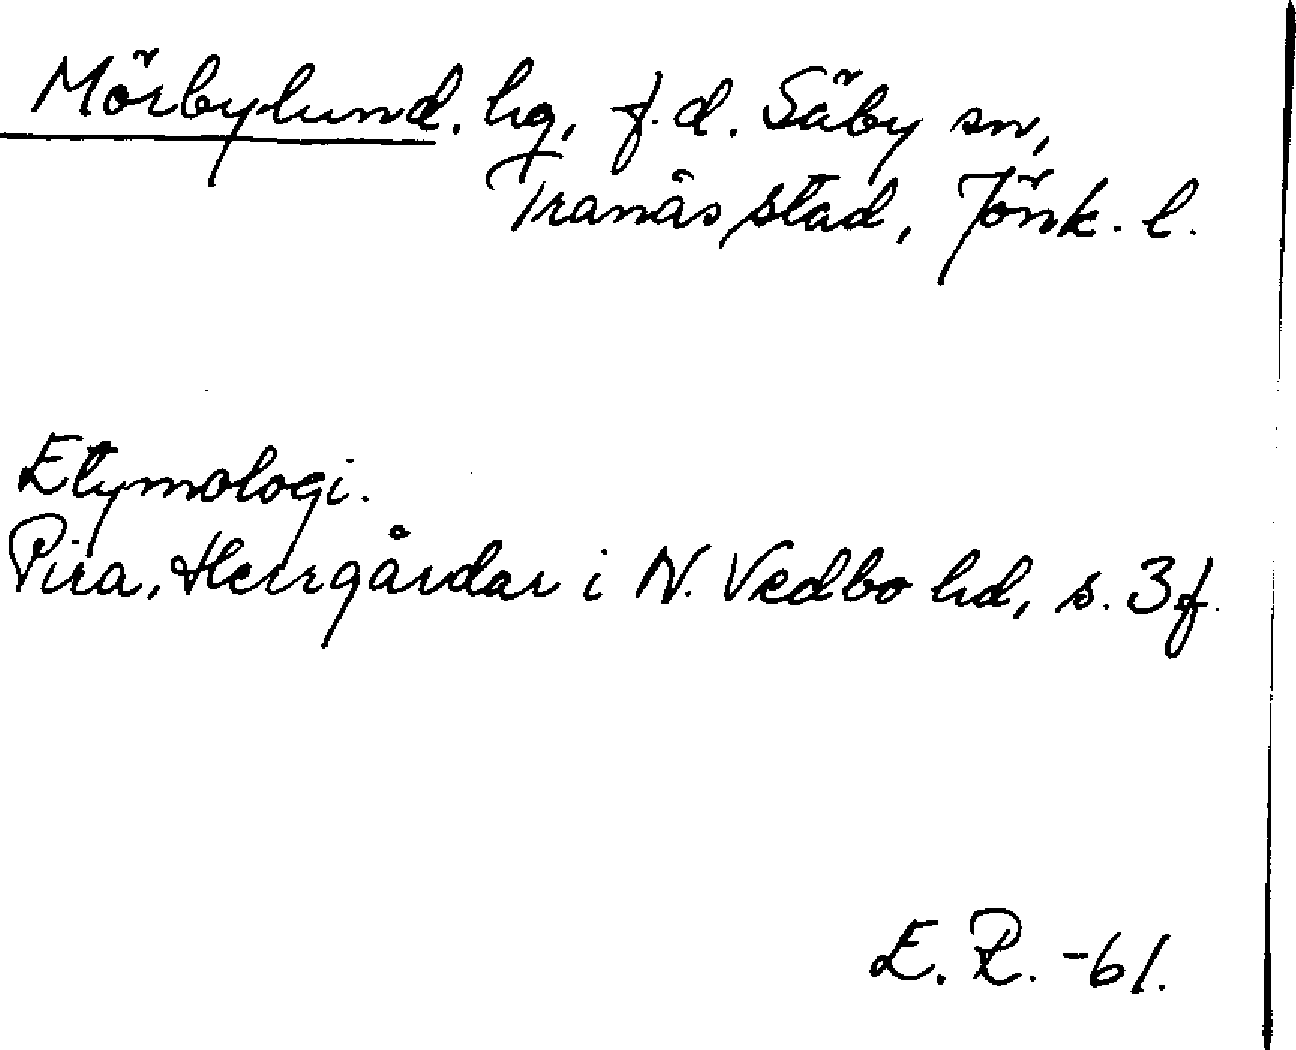 Mörbylund. hg, f.d. Säby sn,
Tranås stad, Jönk. l.
Etymologi.
Pira, Herrgårdar i N. Vedbo hd, s. 3f.
E. R. -61.